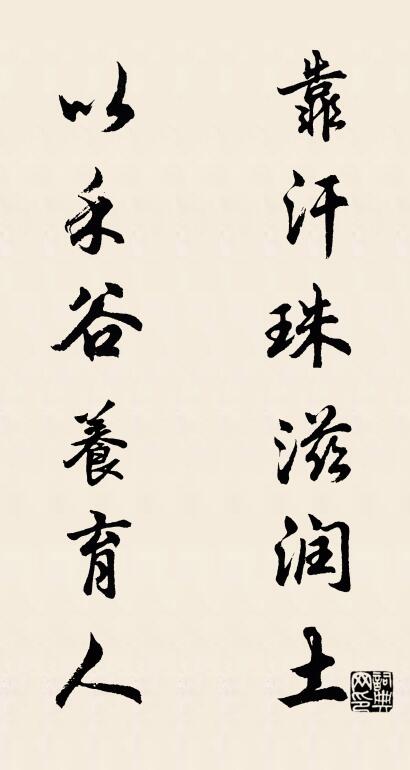 靠汗珠滋润土
以禾谷養育人
詞典网印